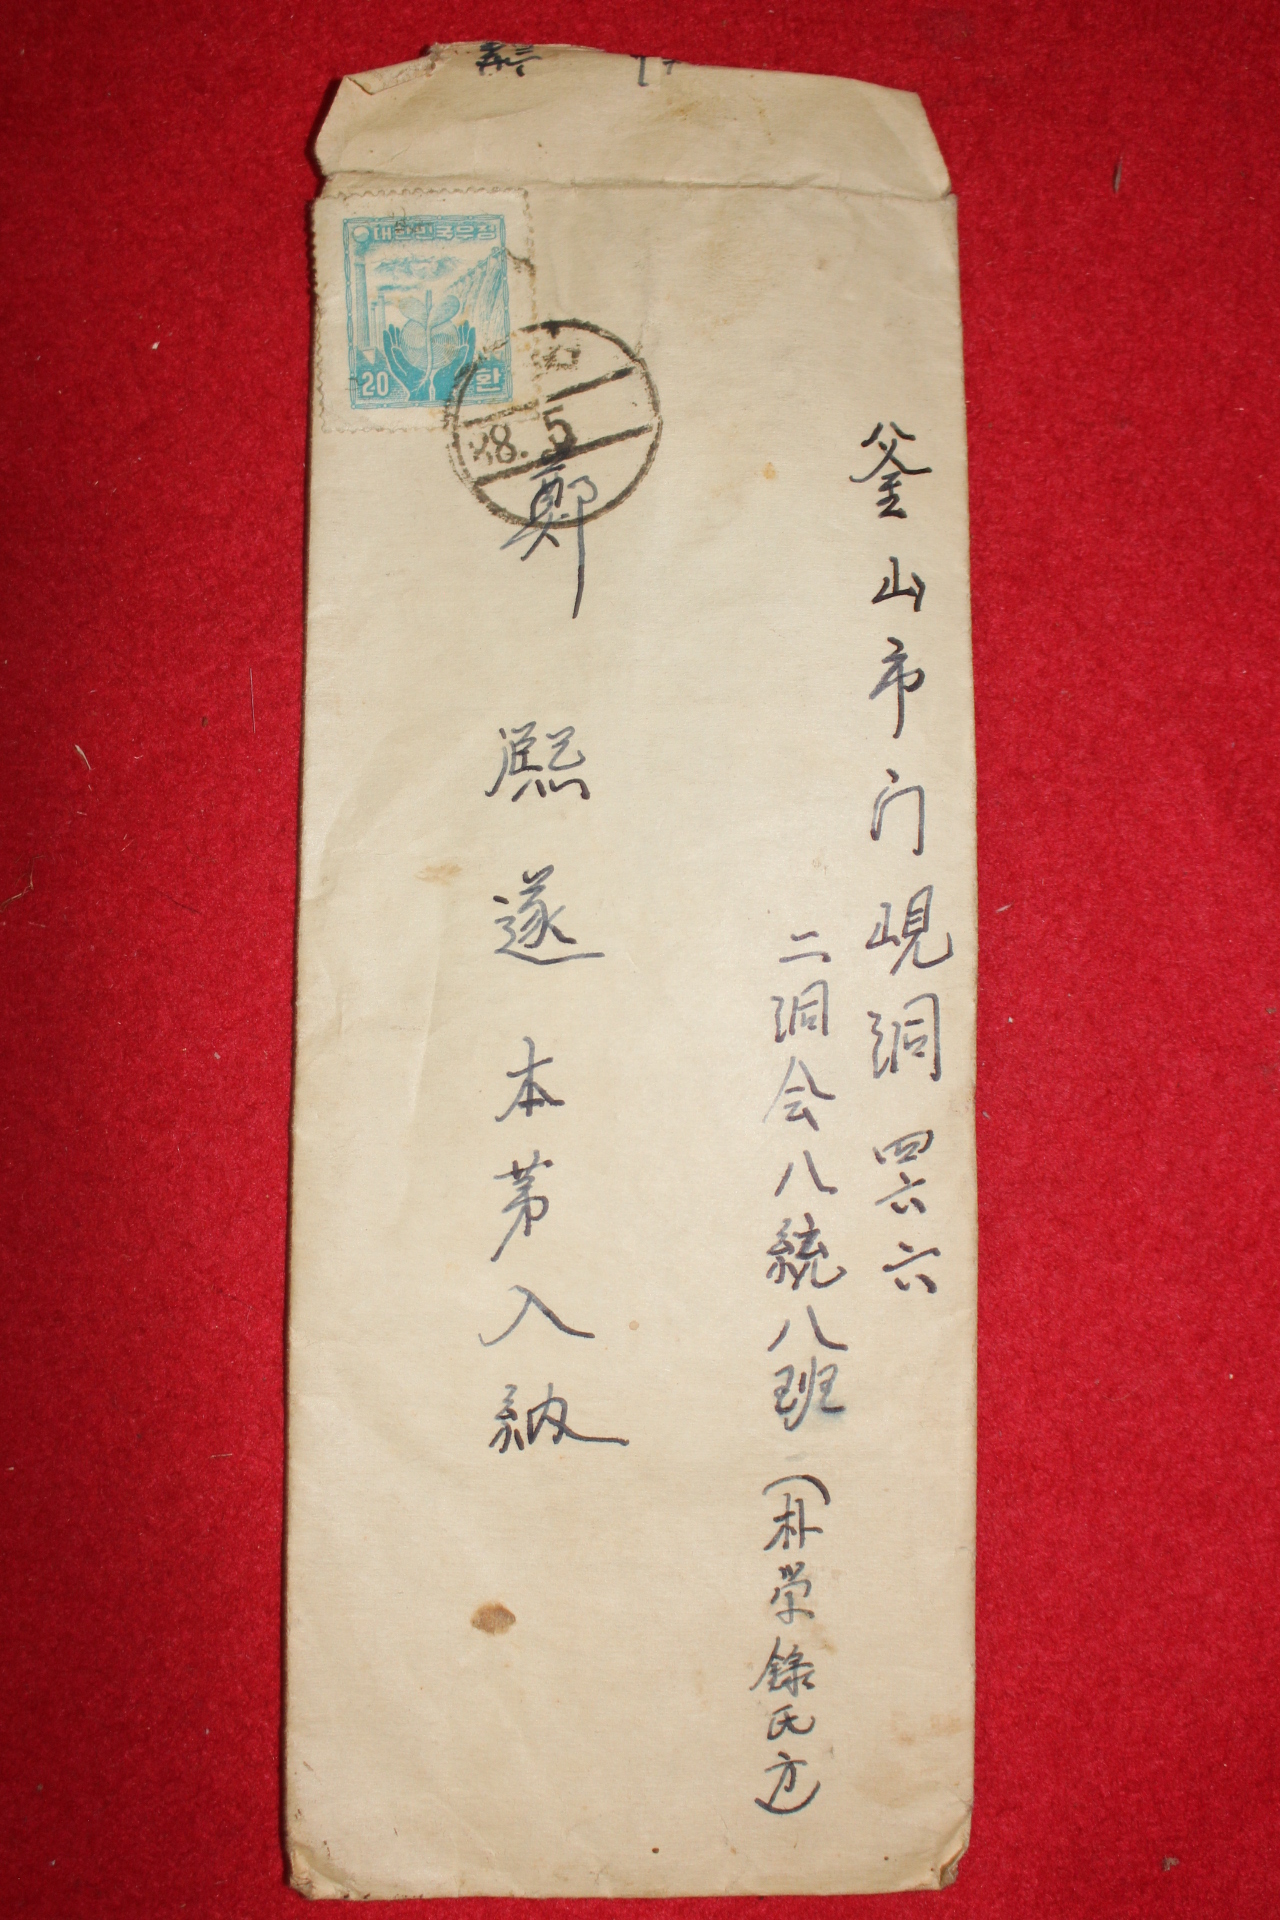 釜山市门峴洞四六六
二洞会八統八班(朴栄錄氏方)
鄭熙遂本第入納
대한민국우정
20 환
88. 5